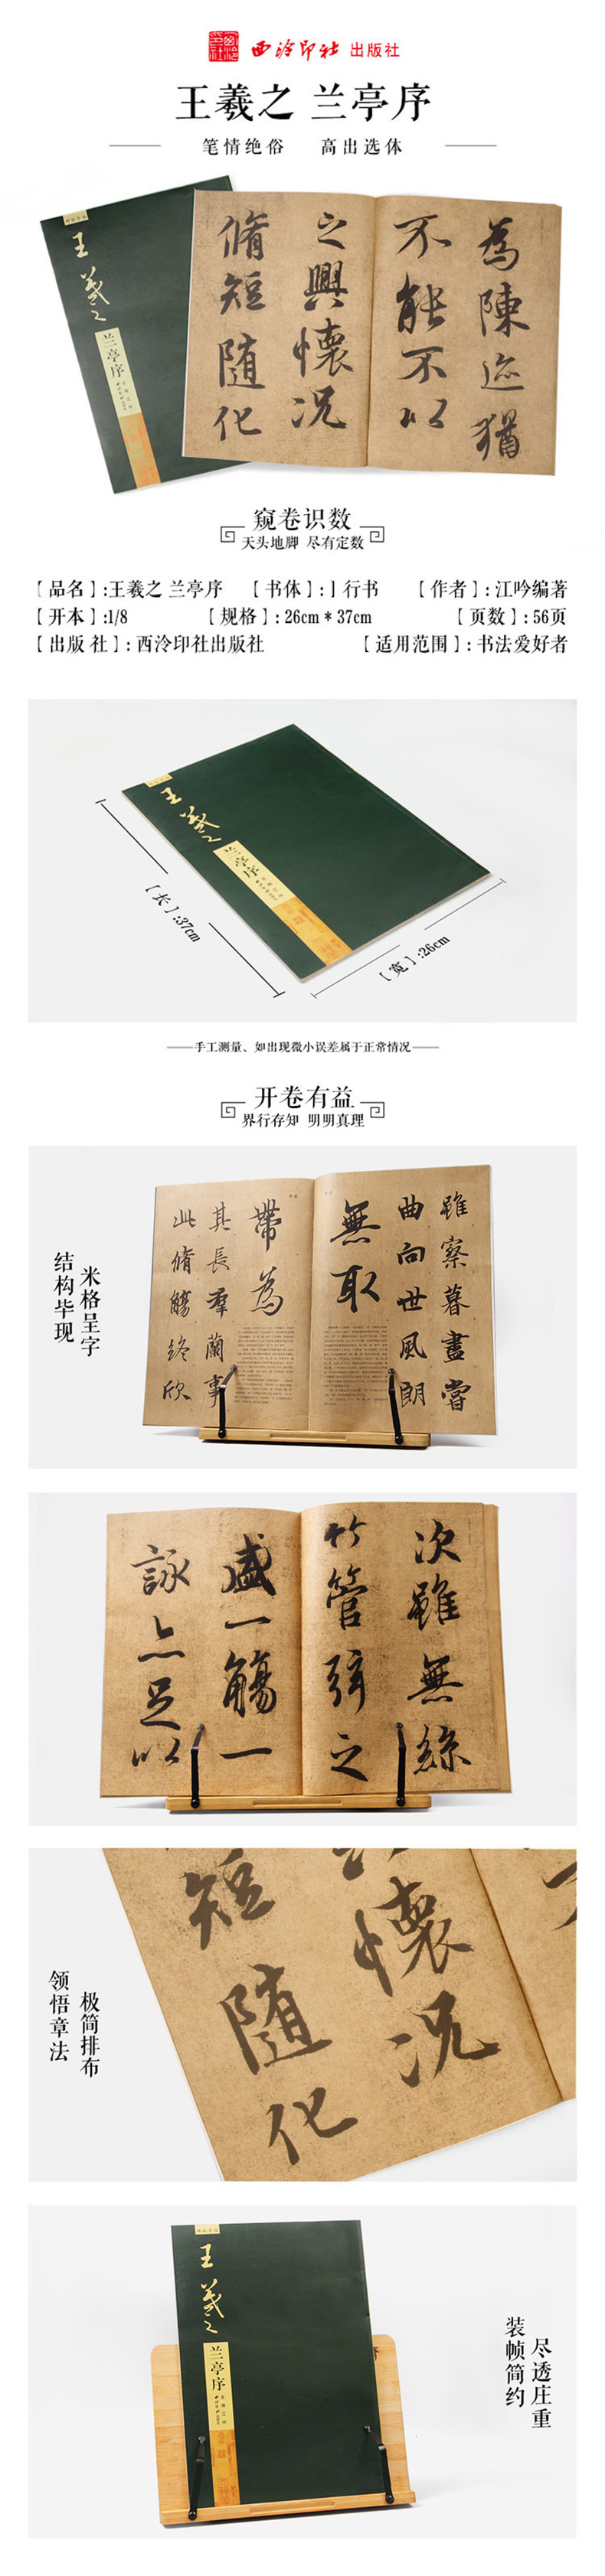 西泠印社 出版社
王羲之 兰亭序
笔情绝俗 高出选体
王羲之
兰亭序
為陳迹猶
不能不以
之興懷况
脩短随化
窥卷识数
天头地脚 尽有定数
【品名】:王羲之 兰亭序 【书体】:丨行书 【作者】:江吟编著
【开本】:1/8 【规格】:26cm*37cm 【页数】:56页
【出版 社】:西泠印社出版社 【适用范围】:书法爱好者
王羲之
兰亭序
【长】:37cm
【宽】:26cm
手工测量、如出现微小误差属于正常情况
开卷有益
界行存知 明明真理
米格呈字
结构毕现
雖察暮盡嘗
曲向世風朗
無取
帶為
其長羣蘭事
此脩觴終欣
次雖無絲
竹管弦之
盛一觴一
詠亦足以
极简排布
领悟章法
懷况
短随化
尽透庄重
装帧简约
王羲之
兰亭序